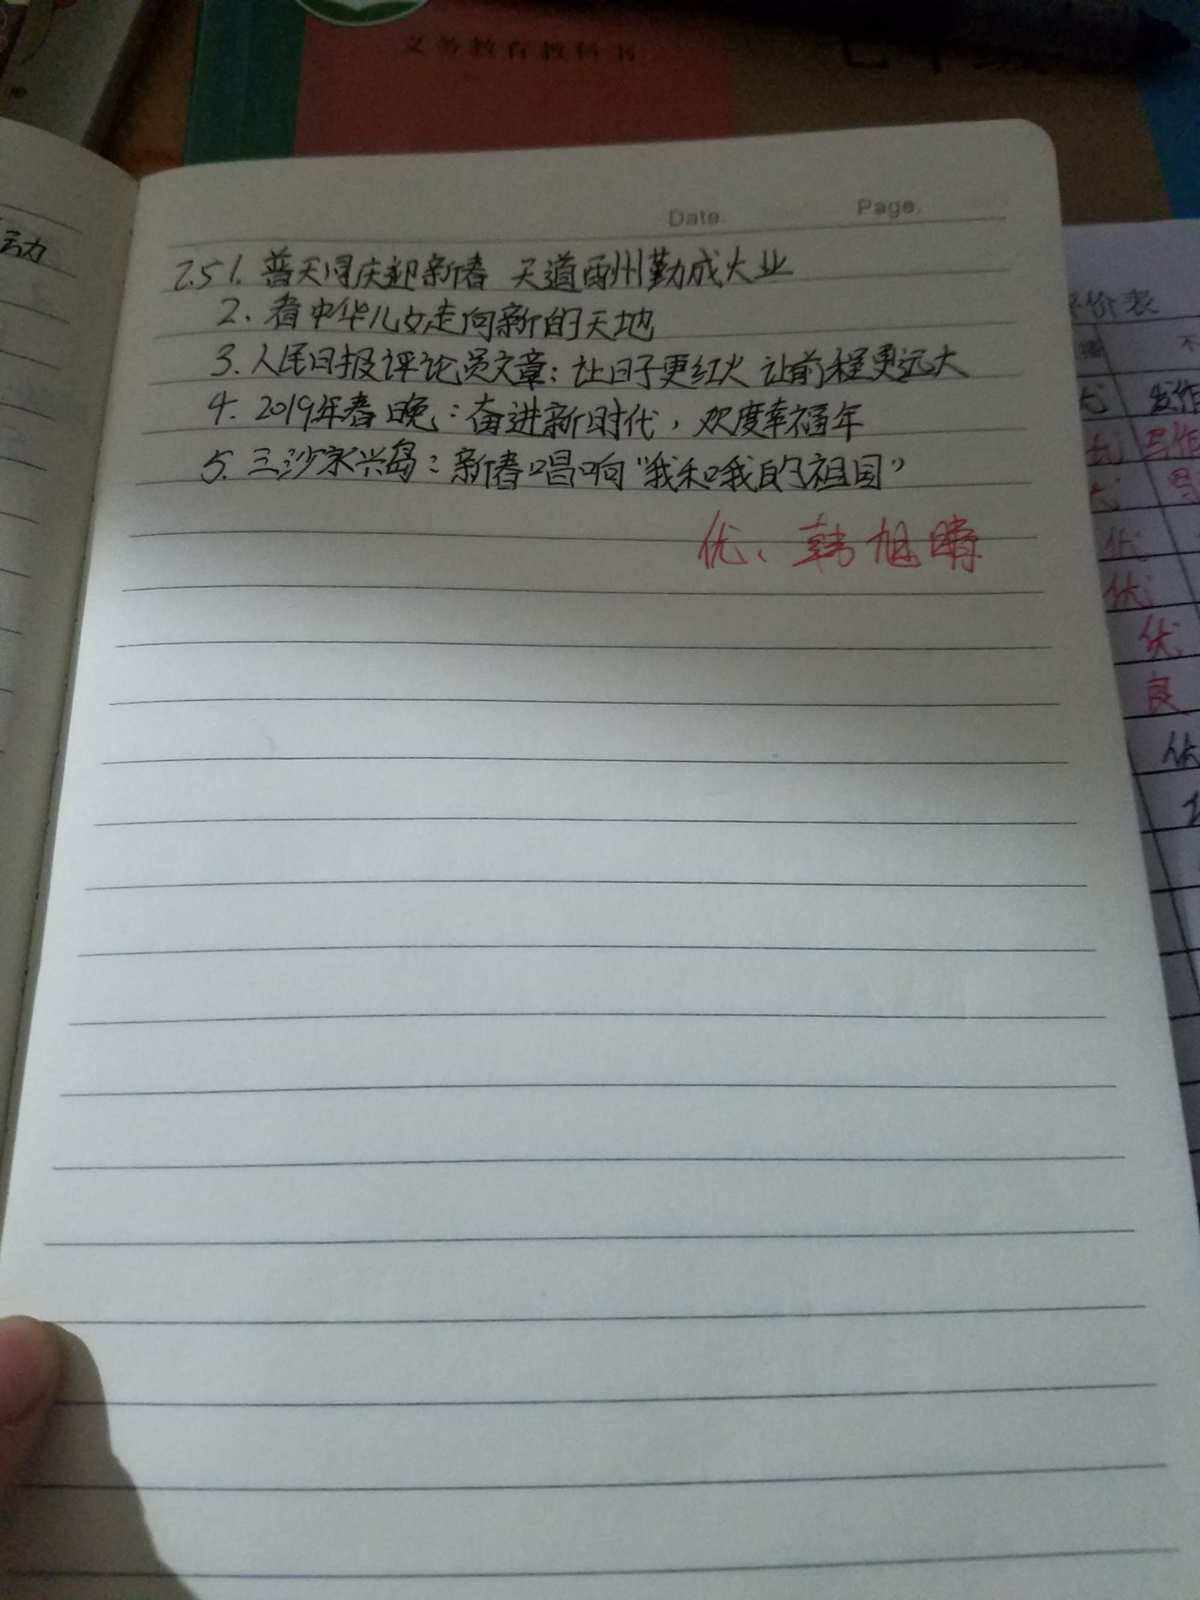 义务教育教科书
Date.
Page.
2.5 1. 普天同庆迎新春 天道酬勤成大业
2. 看中华儿女走向新的天地
3. 人民日报评论员文章：让日子更红火 让前程更远大
4. 2019年春晚：奋进新时代，欢度幸福年
5. 三沙永兴岛：新春唱响“我和我的祖国”
优、韩旭晴
动
评价表
优
优
优
良